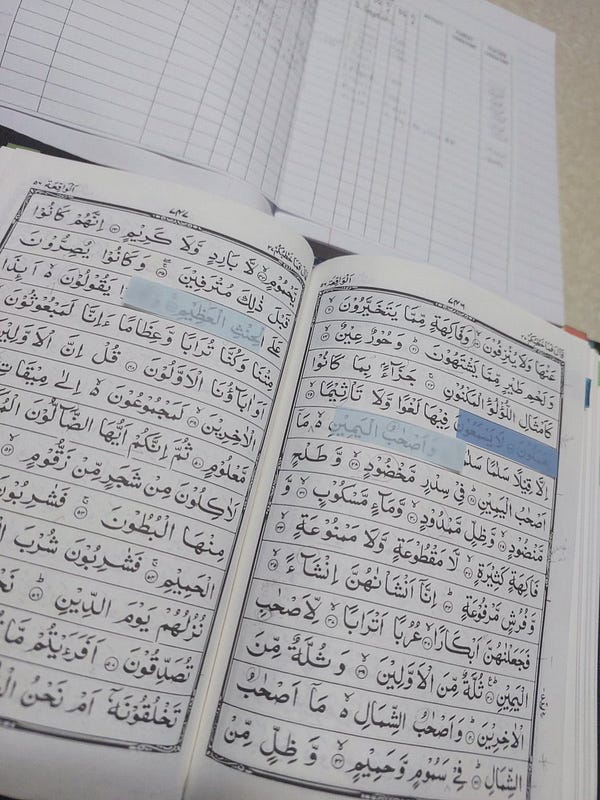 قَالَ فَمَا خَطْبُكُمْ ٢٧ ٧٤٦ اَلْوَاقِعَة ٥٦
عَنْهَا وَلَا يُنْزِفُوْنَ ۙ وَفَاكِهَةٍ مِّمَّا يَتَخَيَّرُوْنَ ۙ
وَلَحْمِ طَيْرٍ مِّمَّا يَشْتَهُوْنَ ؕ وَحُوْرٌ عِيْنٌ ۙ
كَاَمْثَالِ اللُّؤْلُؤِ الْمَكْنُوْنِ ۚ جَزَآءًۢ بِمَا كَانُوْا
يَعْمَلُوْنَ لَا يَسْمَعُوْنَ فِيْهَا لَغْوًا وَّلَا تَاْثِيْمًا ۙ
اِلَّا قِيْلًا سَلٰمًا وَاَصْحٰبُ الْيَمِيْنِ مَآ
اَصْحٰبُ الْيَمِيْنِ ؕ فِيْ سِدْرٍ مَّخْضُوْدٍ ۙ وَّطَلْحٍ
مَّنْضُوْدٍ ۙ وَّظِلٍّ مَّمْدُوْدٍ ۙ وَّمَآءٍ مَّسْكُوْبٍ ۙ وَّ
فَاكِهَةٍ كَثِيْرَةٍ ۙ لَّا مَقْطُوْعَةٍ وَّلَا مَمْنُوْعَةٍ ۙ
وَّفُرُشٍ مَّرْفُوْعَةٍ ؕ اِنَّآ اَنْشَاْنٰهُنَّ اِنْشَآءً ۙ
فَجَعَلْنٰهُنَّ اَبْكَارًا ۙ عُرُبًا اَتْرَابًا ۙ لِّاَصْحٰبِ
الْيَمِيْنِ ؕ ثُلَّةٌ مِّنَ الْاَوَّلِيْنَ ۙ وَثُلَّةٌ مِّنَ
الْاٰخِرِيْنَ ؕ وَاَصْحٰبُ الشِّمَالِ مَآ اَصْحٰبُ
الشِّمَالِ ؕ فِيْ سَمُوْمٍ وَّحَمِيْمٍ ۙ وَّظِلٍّ مِّنْ
قَالَ فَمَا خَطْبُكُمْ ٢٧ ٧٤٧ اَلْوَاقِعَة ٥٦
يَّحْمُوْمٍ ۙ لَّا بَارِدٍ وَّلَا كَرِيْمٍ اِنَّهُمْ كَانُوْا
قَبْلَ ذٰلِكَ مُتْرَفِيْنَ ۚ وَكَانُوْا يُصِرُّوْنَ
عَلَى الْحِنْثِ الْعَظِيْمِ يَقُوْلُوْنَ اَئِذَا
مِتْنَا وَكُنَّا تُرَابًا وَّعِظَامًا ءَاِنَّا لَمَبْعُوْثُوْنَ
اَوَاٰبَآؤُنَا الْاَوَّلُوْنَ قُلْ اِنَّ الْاَوَّلِيْنَ
الْاٰخِرِيْنَ ۙ لَمَجْمُوْعُوْنَ اِلٰى مِيْقَاتِ
مَّعْلُوْمٍ ثُمَّ اِنَّكُمْ اَيُّهَا الضَّآلُّوْنَ
لَاٰكِلُوْنَ مِنْ شَجَرٍ مِّنْ زَقُّوْمٍ ۙ
مِنْهَا الْبُطُوْنَ ۚ فَشٰرِبُوْنَ
الْحَمِيْمِ ۚ فَشٰرِبُوْنَ شُرْبَ
نُزُلُهُمْ يَوْمَ الدِّيْنِ ؕ
تُصَدِّقُوْنَ اَفَرَءَيْتُمْ مَّا
تَخْلُقُوْنَهٗٓ اَمْ نَحْنُ